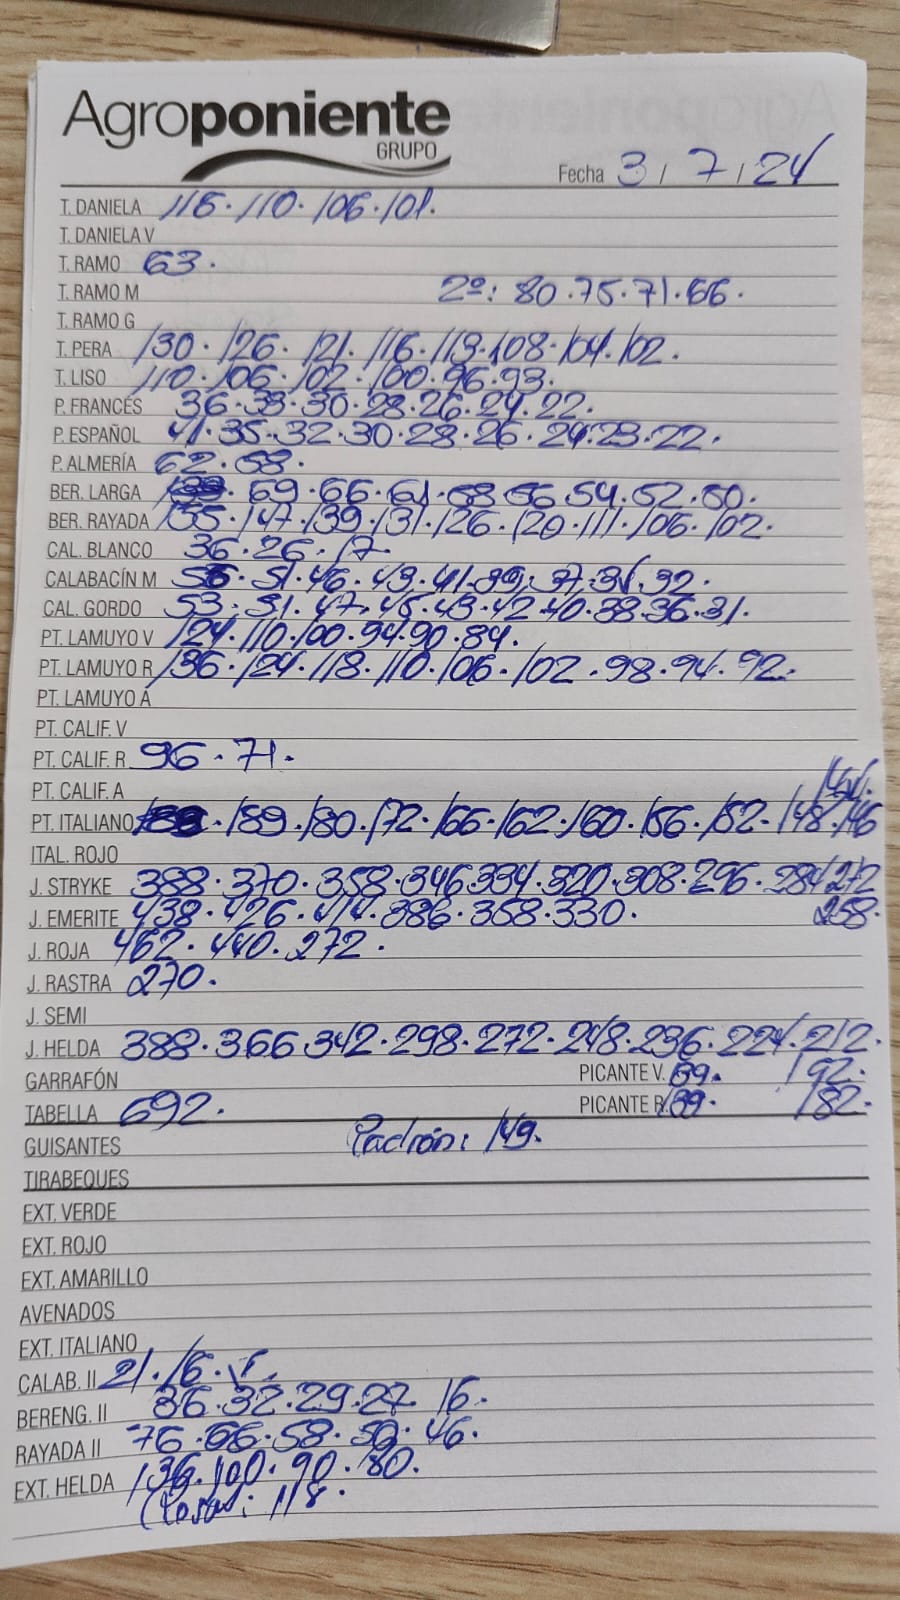 Agroponiente
GRUPO
Fecha 3 / 7 / 24
T. DANIELA 116. 110. 106. 101.
T. DANELA V
T. RAMO 63.
T. RAMO M 2º: 80.75.71.66.
T. RAMO G
T. PERA 130. 126. 121. 116. 113. 108. 104. 102.
T. LISO 110. 106. 102. 100. 96. 93.
P. FRANCÉS 36. 33. 30. 28. 26. 24. 22.
P. ESPAÑOL 41. 35. 32. 30. 28. 26. 24. 23. 22.
P. ALMERÍA 62. 58.
BER. LARGA 69. 66. 61. 58 56 54. 52. 50.
BER. RAYADA 155. 147. 139. 131. 126. 120. 111. 106. 102.
CAL. BLANCO 36. 26. 17.
CALABACÍN M 51. 46. 43. 41. 39. 37. 32.
CAL. GORDO 53. 51. 47. 45. 43. 42. 40. 38. 36. 31.
PT. LAMUYO V 124. 110. 100. 94. 90. 84.
PT. LAMUYO R 136. 124. 118. 110. 106. 102. 98. 94. 92.
PT. LAMUYO A
PT. CALIF. V
PT. CALIF. R 96. 71.
PT. CALIF. A 144.
PT. ITALIANO 189. 180. 172. 166. 162. 160. 156. 152. 148. 146
ITAL. ROJO
J. STRYKE 388. 370. 358. 346 334. 320. 308. 296. 284 272
J. EMERITE 438. 426. 414. 386. 358. 330. 258.
J. ROJA 462. 440. 272.
J. RASTRA 270.
J. SEMI
J. HELDA 388. 366 342. 298. 272. 248. 236. 224. 212.
GARRAFÓN PICANTE V. 89. 192.
TABELLA 692. PICANTE R 189. 182.
GUISANTES Padrón: 149.
TIRABEQUES
EXT. VERDE
EXT. ROJO
EXT. AMARILLO
AVENADOS
EXT. ITALIANO
CALAB. II 21. 16.
BERENG. II 36. 32. 29. 27. 16.
RAYADA II 76. 66. 58. 50. 46.
EXT. HELDA 136. 100. 90. 80.
118.